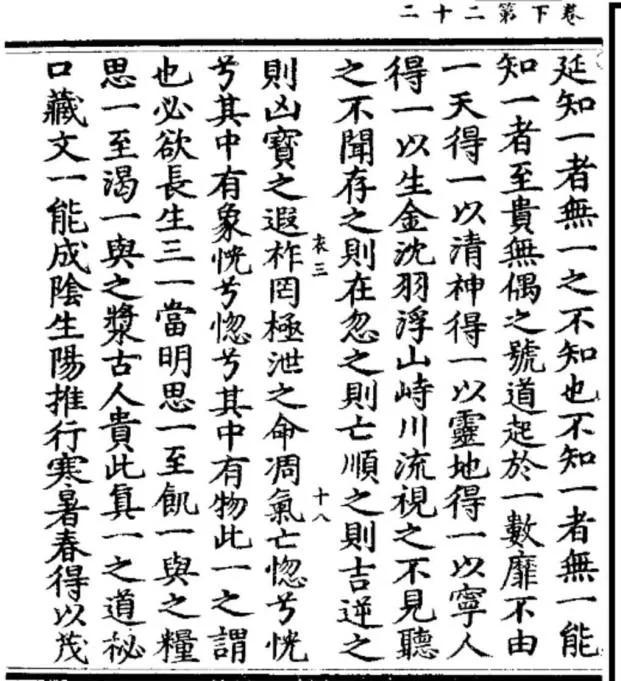 卷下第二十二
延知一者無一之不知也不知一者無一能
知一者至貴無偶之號道起於一數靡不由
一天得一以清神得一以靈地得一以寧人
得一以生金沈羽浮山峙川流視之不見聽
之不聞存之則在忽之則亡順之則吉逆之
則凶寶之遐祚罔極泄之命凋氣亡惚兮恍
兮其中有象恍兮惚兮其中有物此一之謂
也必欲長生三一當明思一至飢一與之糧
思一至渴一與之漿古人貴此真一之道秘
口藏文一能成陰生陽推行寒暑春得以茂
十八